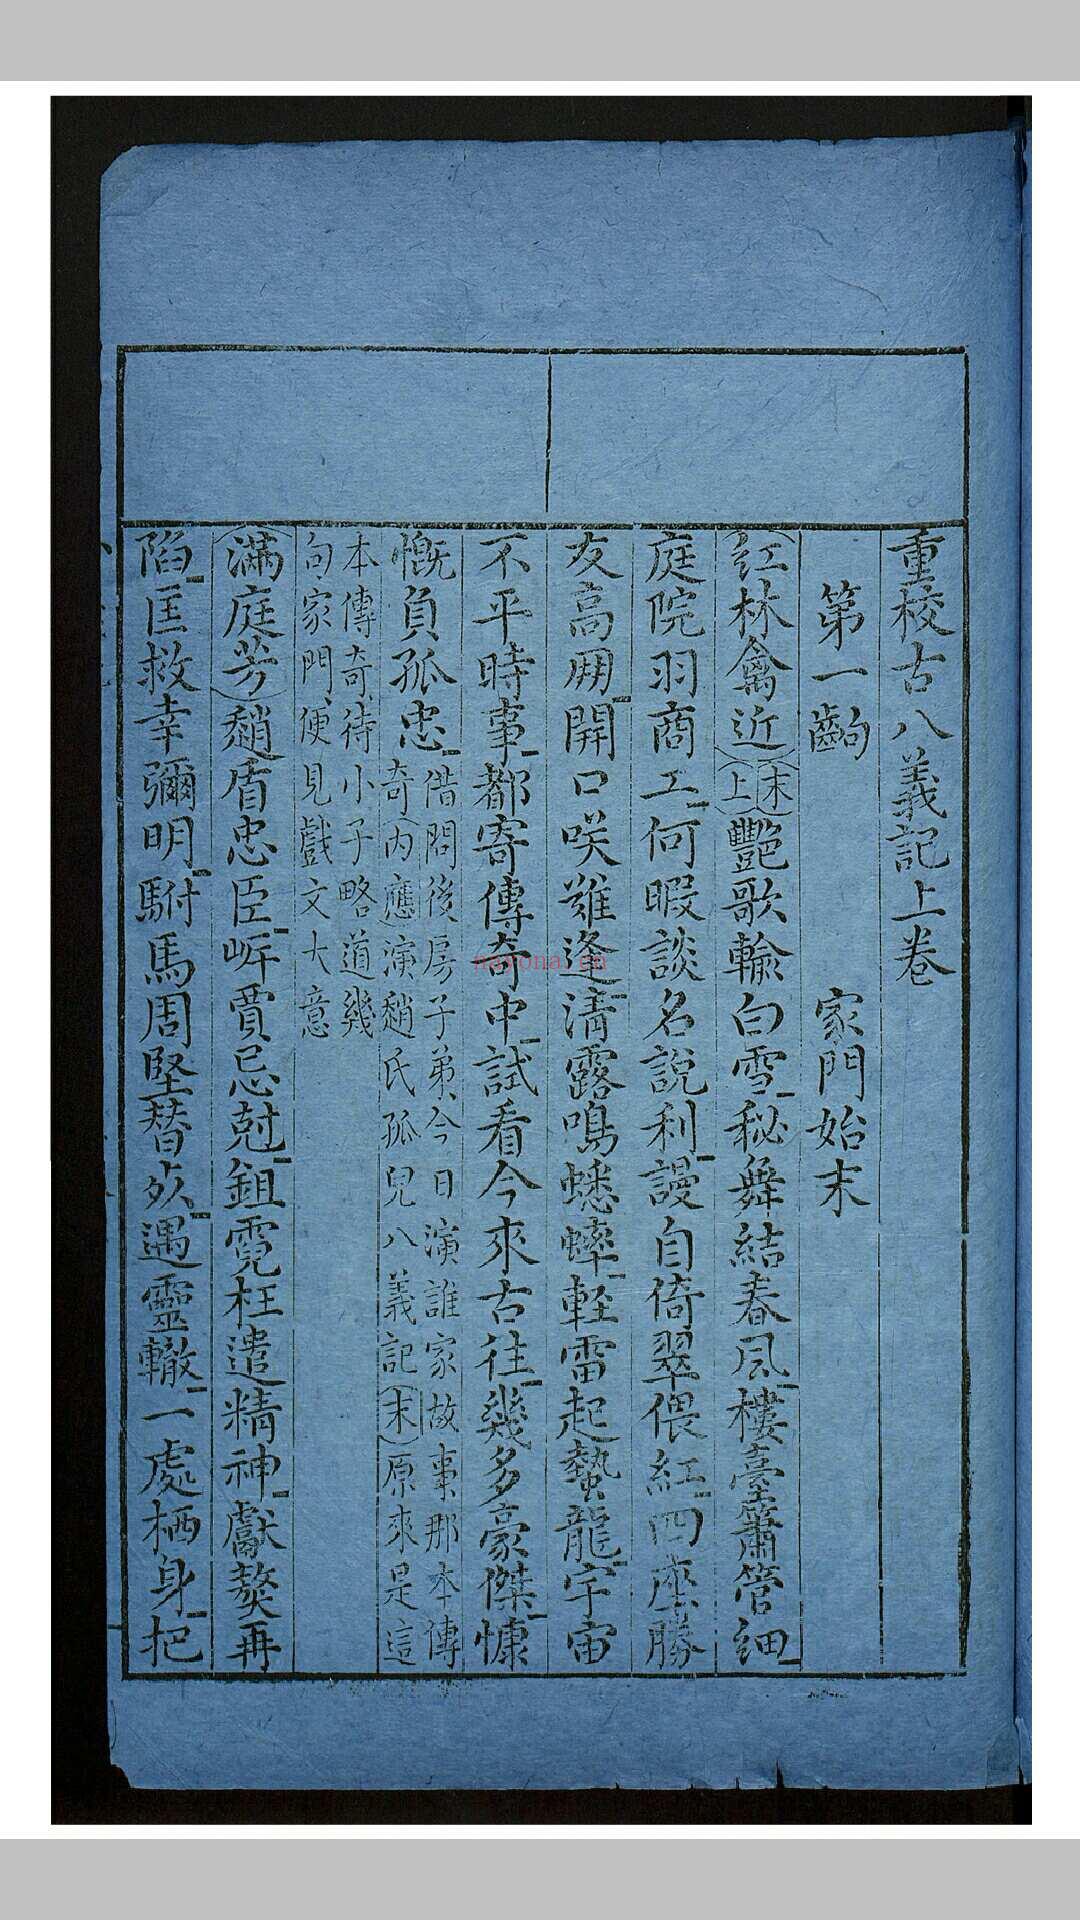 重校古八義記上卷
第一齣　家門始末
(紅林禽近)(末上)豔歌輸白雪秘舞結春風樓臺簫管細
庭院羽商工何暇談名說利謾自倚翠偎紅四座勝
友高朋開口咲難逢清露鳴蟋蟀輕雷起蟄龍宇宙
不平時事都寄傳奇中試看今來古往幾多豪傑慷
慨負孤忠
借問後房子弟今日演誰家故事那本傳
奇(內應)演趙氏孤兒八義記(末)原來是這
本傳奇待小子略道幾
句家門便見戲文大意
(滿庭芳)趙盾忠臣岸賈忌尅鉏霓枉遣精神獻獒再
陷匡救幸彌明駙馬周堅替死遇靈轍一處栖身把
nayona.cn